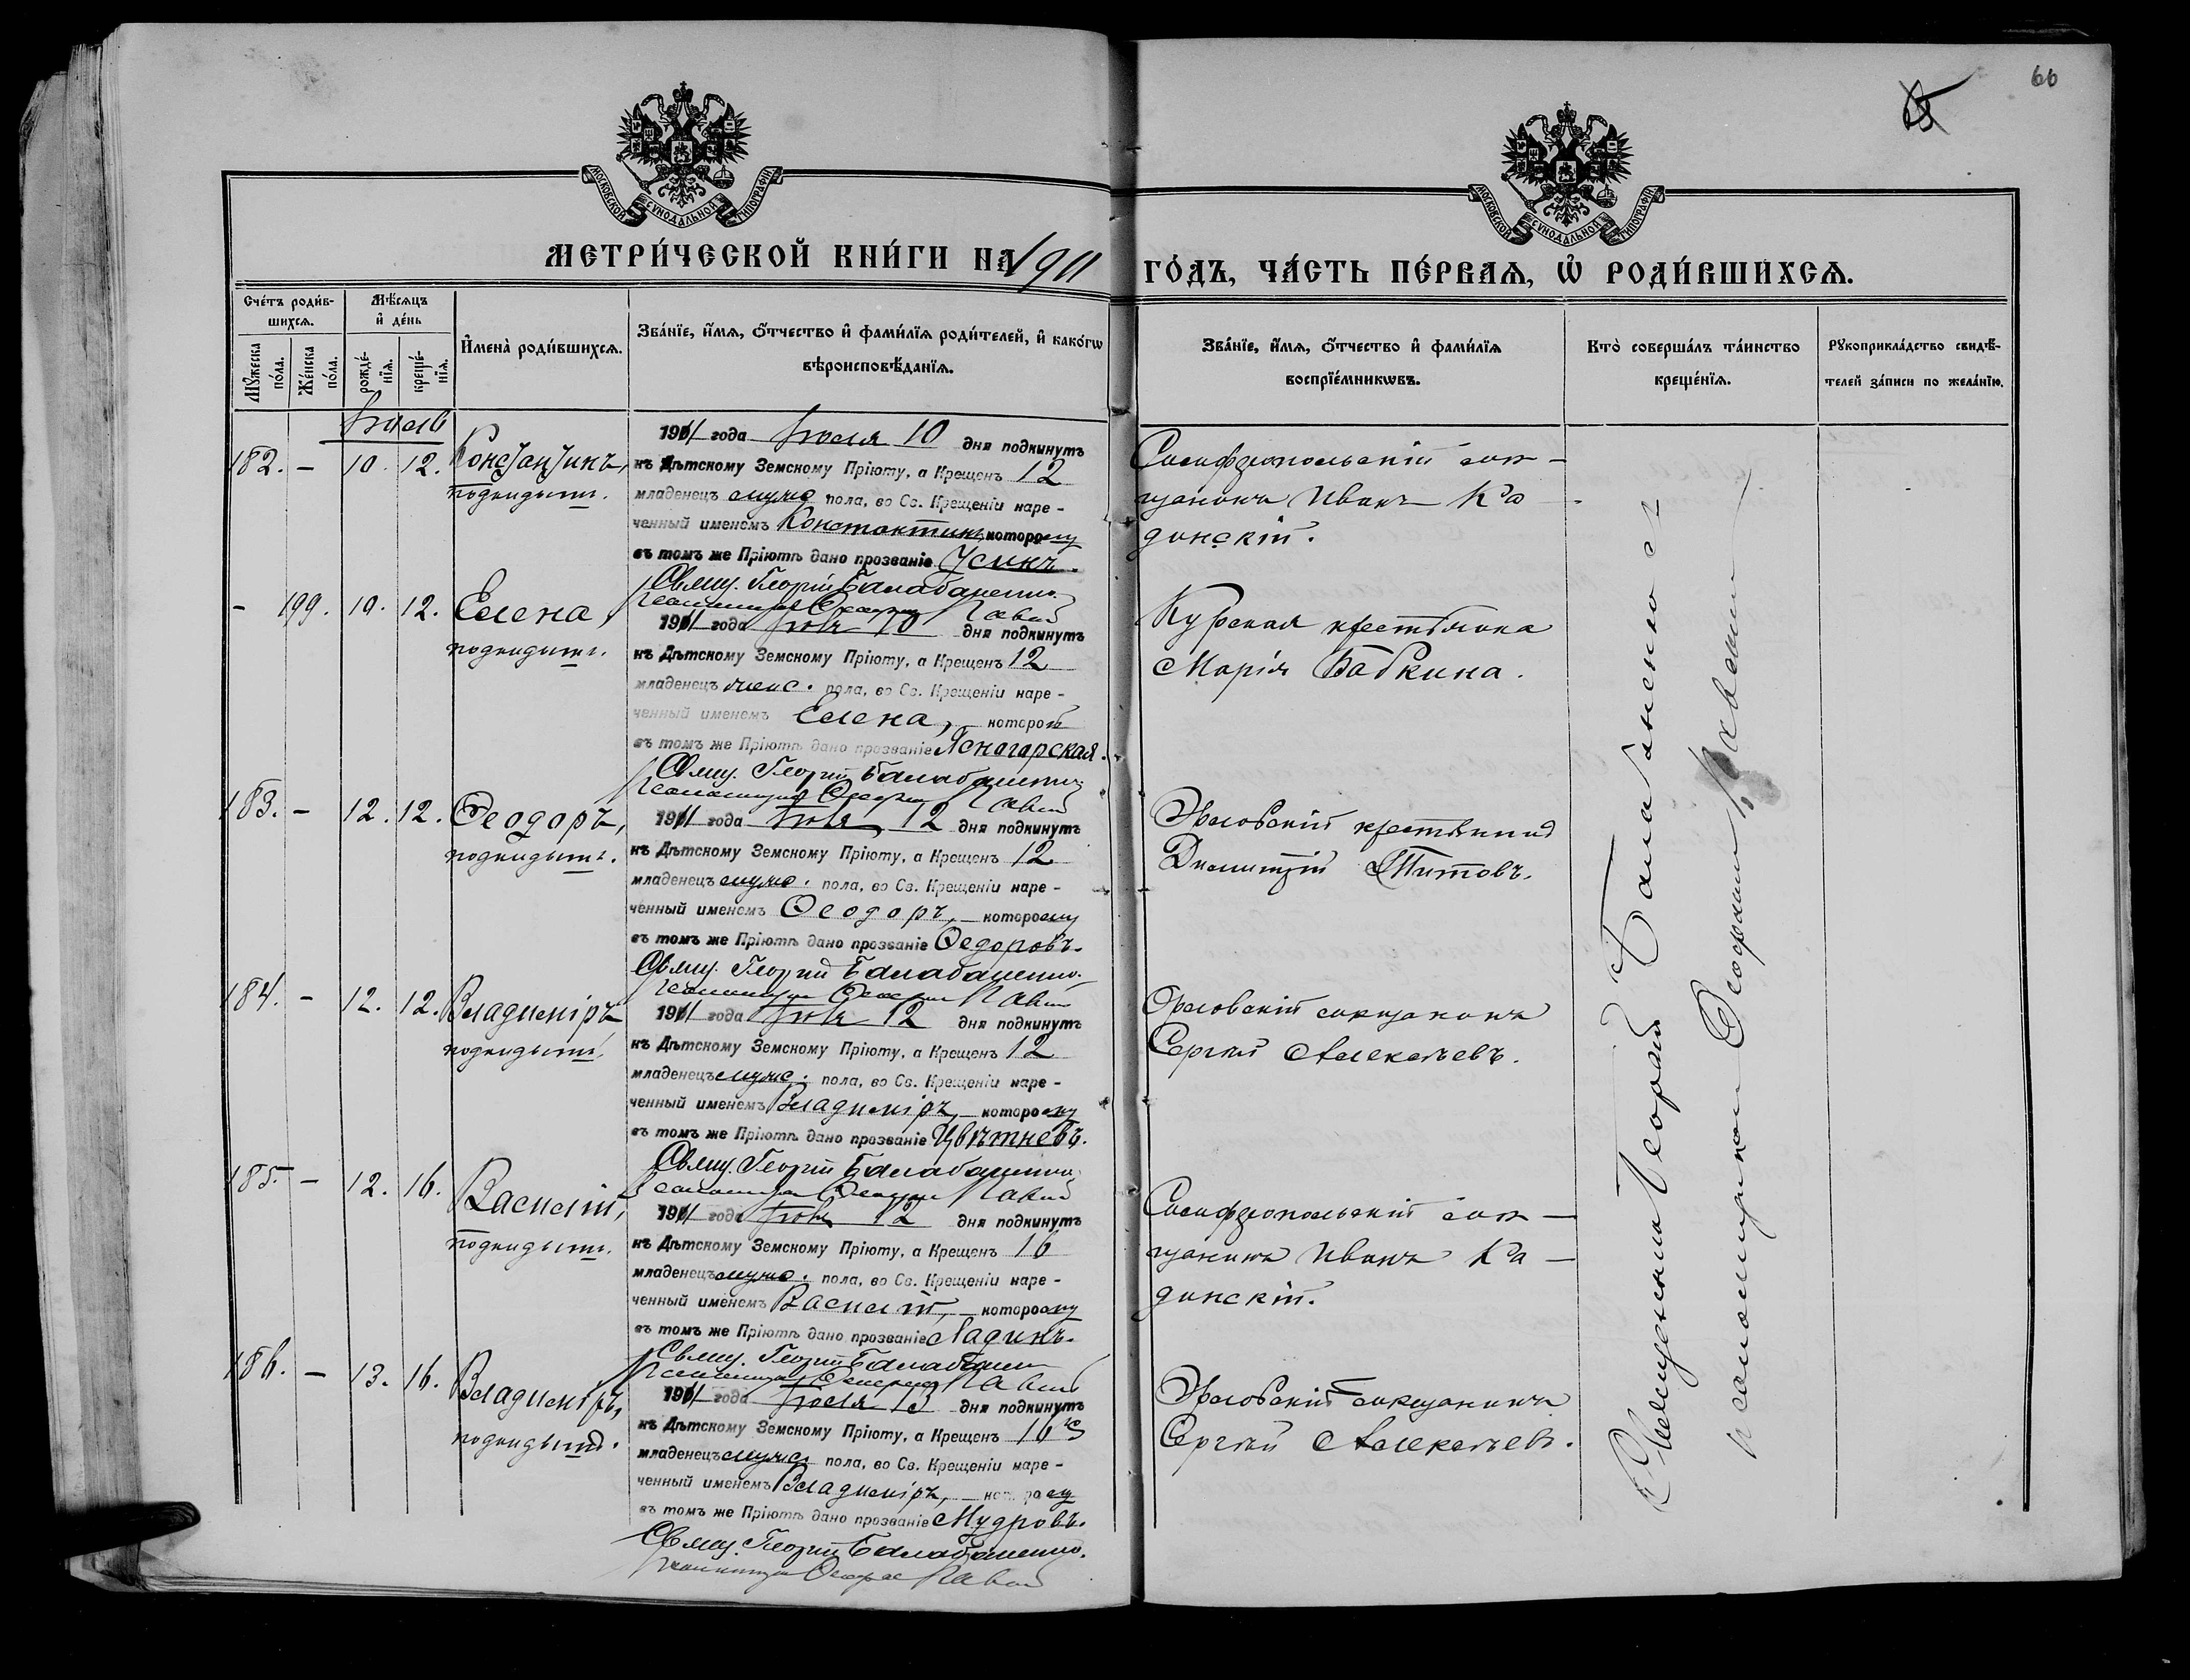 66
МОСКОВСКОЙ СѴНОДАЛЬНОЙ ТИПОГРАФІИ
МОСКОВСКОЙ СѴНОДАЛЬНОЙ ТИПОГРАФІИ
МЕТРИ́ЧЕСКОЙ КНИ́ГИ НА 1911
ГО́ДЪ, ЧА́СТЬ ПЕ́РВАѦ, Ѡ҆ РОДИ́ВШИХСѦ.
Сче́тъ роди́в-
шихсѧ.
Мꙋ́жеска по́ла.
Же́нска по́ла.
Мѣ́сѧцъ
и҆ де́нь
рожде́-
нїѧ.
креще́-
нїѧ.
И҆мена̀ роди́вшихсѧ.
Зва́нїе, и҆́мѧ, ѻ҆́тчество и҆ фами́лїѧ роди́телей, и҆ како́гѡ
вѣроисповѣ́данїѧ.
Зва́нїе, и҆́мѧ, ѻ҆́тчество и҆ фами́лїѧ
воспрїе́мникѡвъ.
Кто̀ соверша́лъ та́инство
креще́нїѧ.
Рꙋкоприкла́дство свидѣ́-
телей за́писи по жела́нїю.
Іюль
182. — 10. 12. Константинъ,
подкидышъ.
1911 года Іюля 10 дня подкинутъ
къ Дѣтскому Земскому Пріюту, а Крещенъ 12
младенецъ муж. пола, во Св. Крещеніи наре-
ченный именемъ Константинъ, которому
въ томъ же Пріютѣ дано прозваніе Усикъ.
Свящ. Георгій Балабаненко.
Псаломщикъ
Симферопольскій мѣ-
щанинъ Иванъ Ка-
динскій.
— 199. 10. 12. Елена,
подкидышъ.
1911 года Іюля 10 дня подкинутъ
къ Дѣтскому Земскому Пріюту, а Крещенъ 12
младенецъ женс. пола, во Св. Крещеніи наре-
ченный именемъ Елена, которой
въ томъ же Пріютѣ дано прозваніе Ясногорская.
Свящ. Георгій Балабаненко
Псаломщикъ
Курская крестьянка
Марія Бабкина.
183. — 12. 12. Ѳеодоръ,
подкидышъ.
1911 года Іюля 12 дня подкинутъ
къ Дѣтскому Земскому Пріюту, а Крещенъ 12
младенецъ муж. пола, во Св. Крещеніи наре-
ченный именемъ Ѳеодоръ, которому
въ томъ же Пріютѣ дано прозваніе Ѳедоровъ.
Свящ. Георгій Балабаненко.
Псаломщикъ
Орловскій крестьянинъ
Димитрій Титовъ.
184. — 12. 12. Владиміръ
подкидышъ.
1911 года Іюля 12 дня подкинутъ
къ Дѣтскому Земскому Пріюту, а Крещенъ 12
младенецъ муж. пола, во Св. Крещеніи наре-
ченный именемъ Владиміръ, которому
въ томъ же Пріютѣ дано прозваніе Цвѣтневъ.
Свящ. Георгій Балабаненко
Псаломщикъ
Орловскій мѣщанинъ
Сергѣй Алексѣевъ.
185. — 12. 16. Василій,
подкидышъ.
1911 года Іюля 12 дня подкинутъ
къ Дѣтскому Земскому Пріюту, а Крещенъ 16
младенецъ муж. пола, во Св. Крещеніи наре-
ченный именемъ Василій, которому
въ томъ же Пріютѣ дано прозваніе Ладинъ.
Свящ. Георгій Балабаненко
Псаломщикъ
Симферопольскій мѣ-
щанинъ Иванъ Ка-
динскій.
186. — 13. 16. Владиміръ,
подкидышъ.
1911 года Іюля 13 дня подкинутъ
къ Дѣтскому Земскому Пріюту, а Крещенъ 16
младенецъ муж. пола, во Св. Крещеніи наре-
ченный именемъ Владиміръ, которому
въ томъ же Пріютѣ дано прозваніе Мудровъ.
Свящ. Георгій Балабаненко.
Псаломщикъ
Орловскій мѣщанинъ
Сергѣй Алексѣевъ.
Священникъ Георгій Балабаненко съ
псаломщикомъ